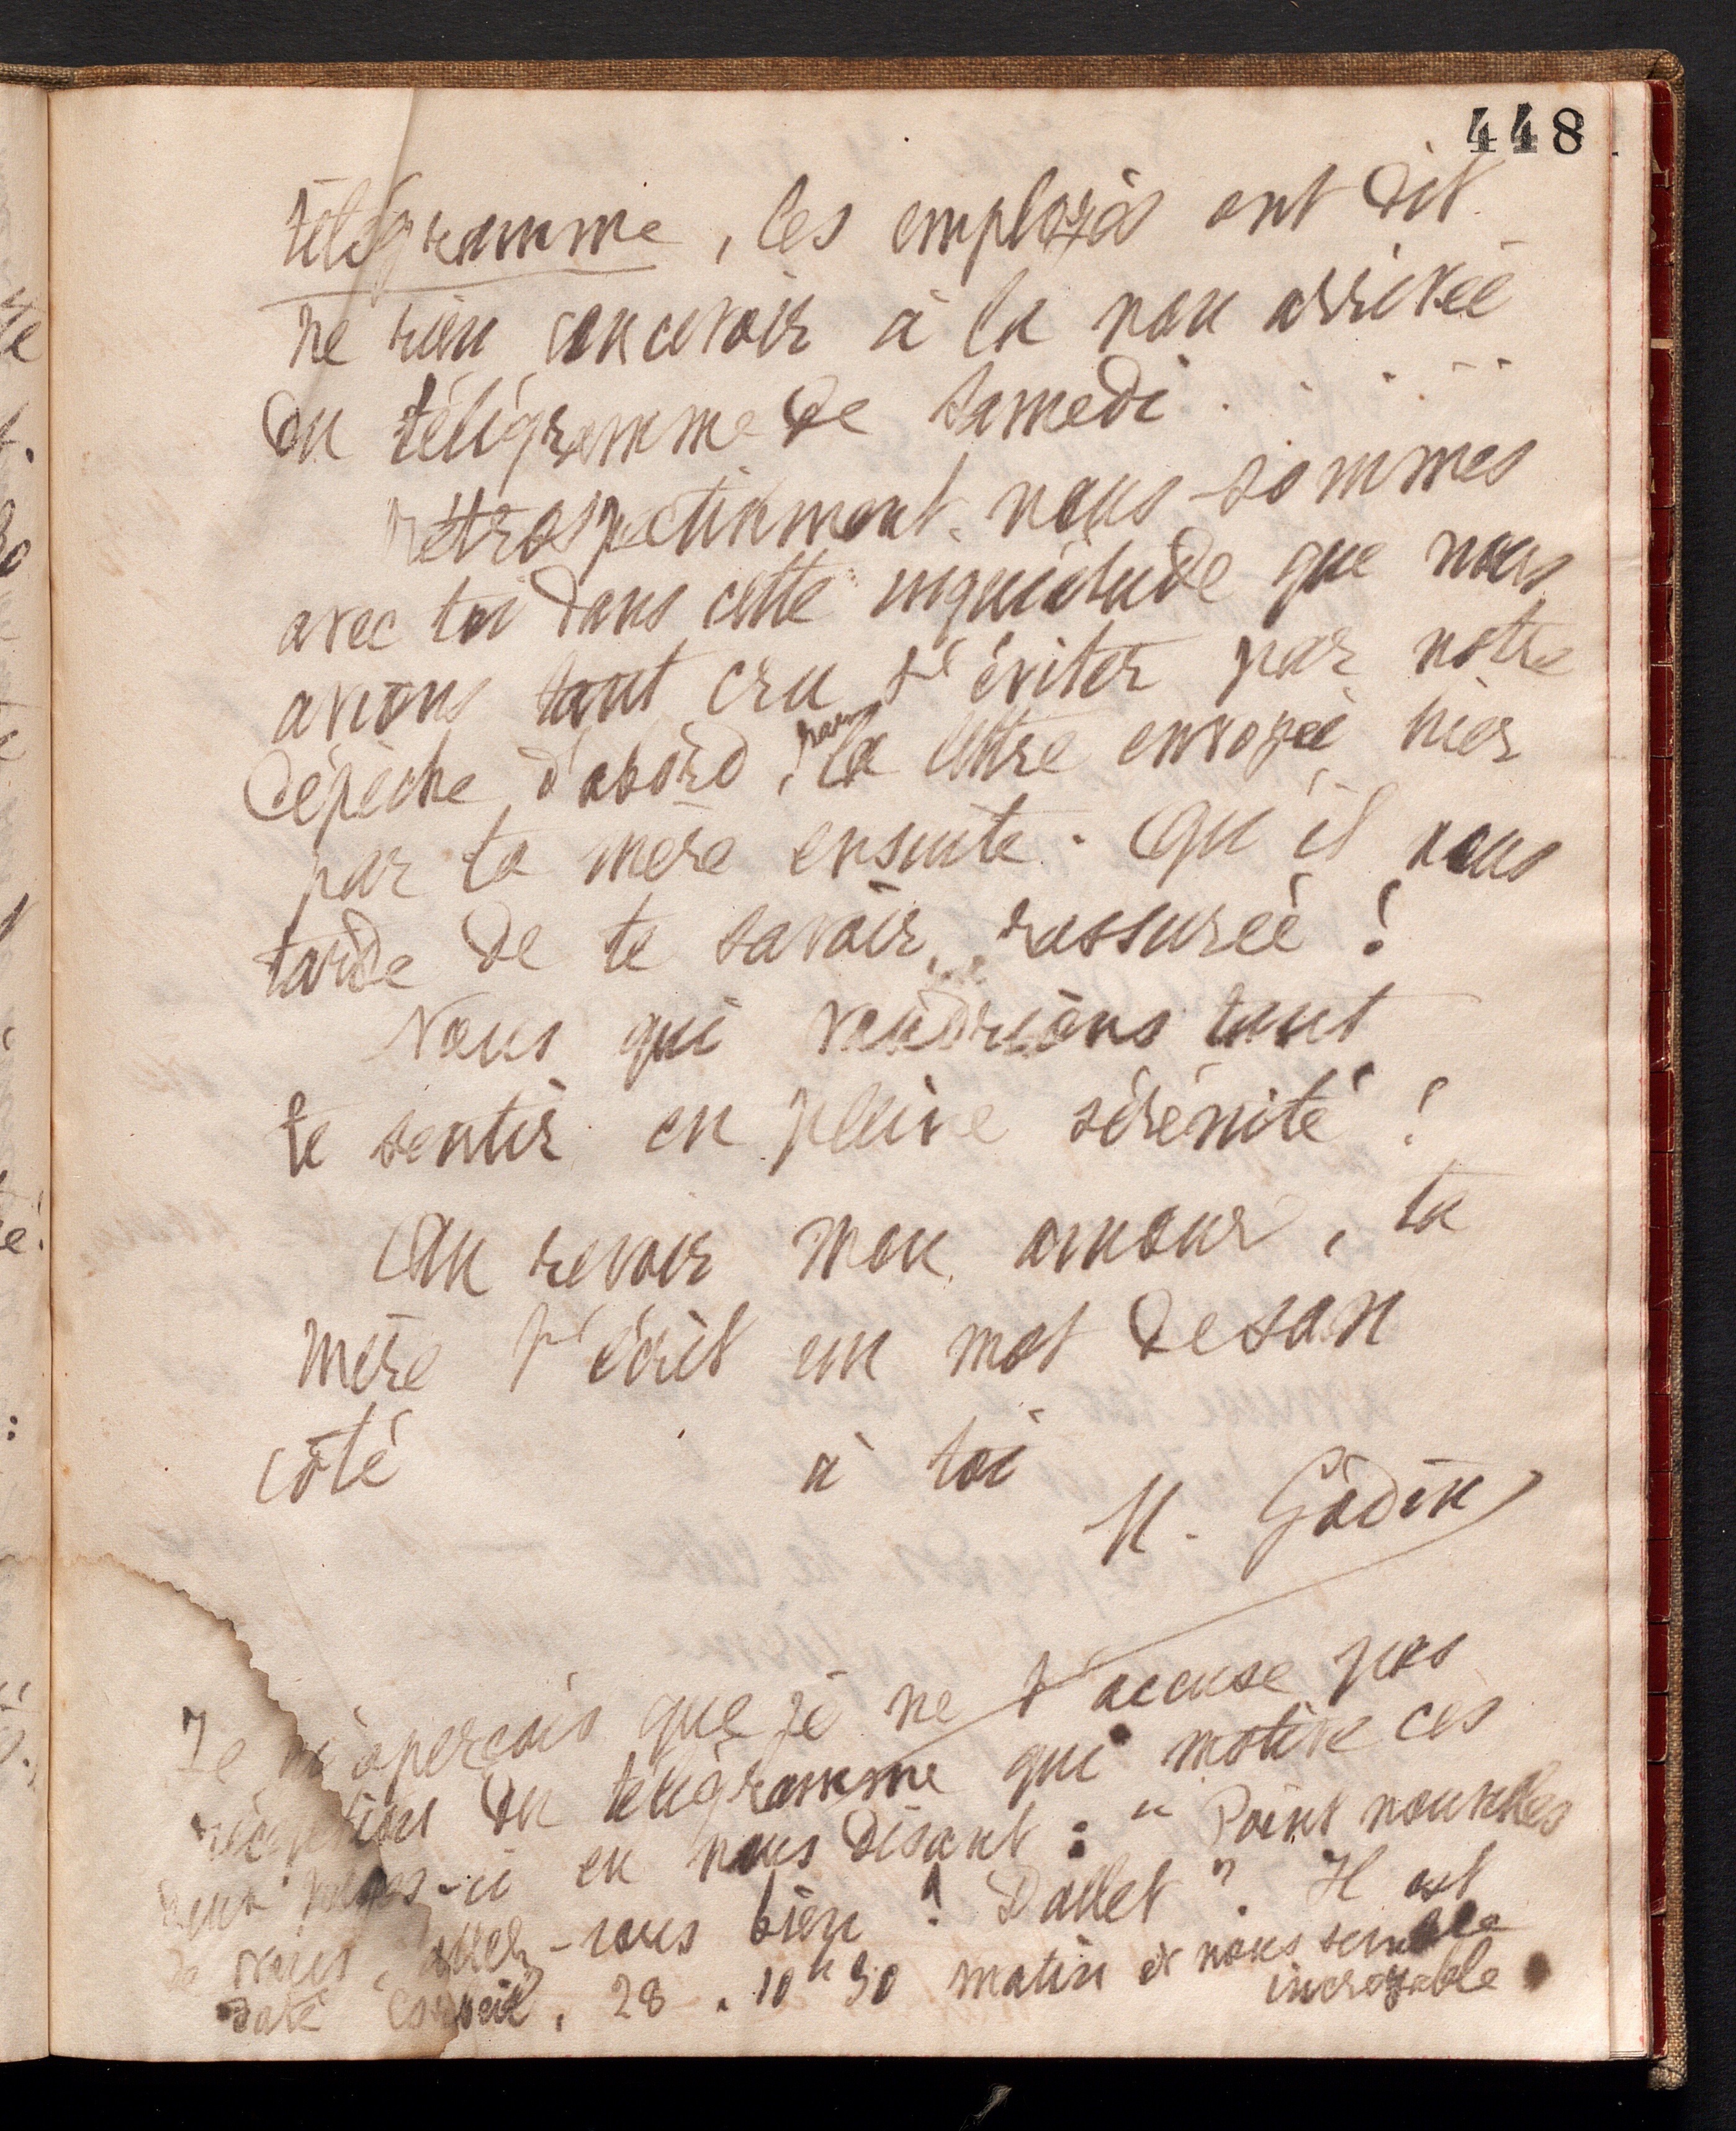 448
télégramme, les employés ont dit
ne rien concevoir à la non arrivée
du télégramme de samedi . . . . .
Rétrospectivement, nous sommes
avec toi dans cette inquiétude que nous
avions tant cru t'éviter par notre
dépêche d'abord, par la lettre envoyée hier
par ta mère ensuite. Qu'il nous
tarde de te savoir rassurée !
Nous qui voudrions tant
te sentir en pleine sérénité !
Au revoir mon amour, ta
mère t'écrit un mot de son
côté à toi
M. Godin
Je m'aperçois que je ne t'accuse pas
réception du télégramme qui motive ces
deux pages-ci en nous disant : "Point nouvelles
de vous, allez-vous bien ! Dallet". Il est
daté Corbeil, 28. 10h 30 matin & nous semble
incroyable